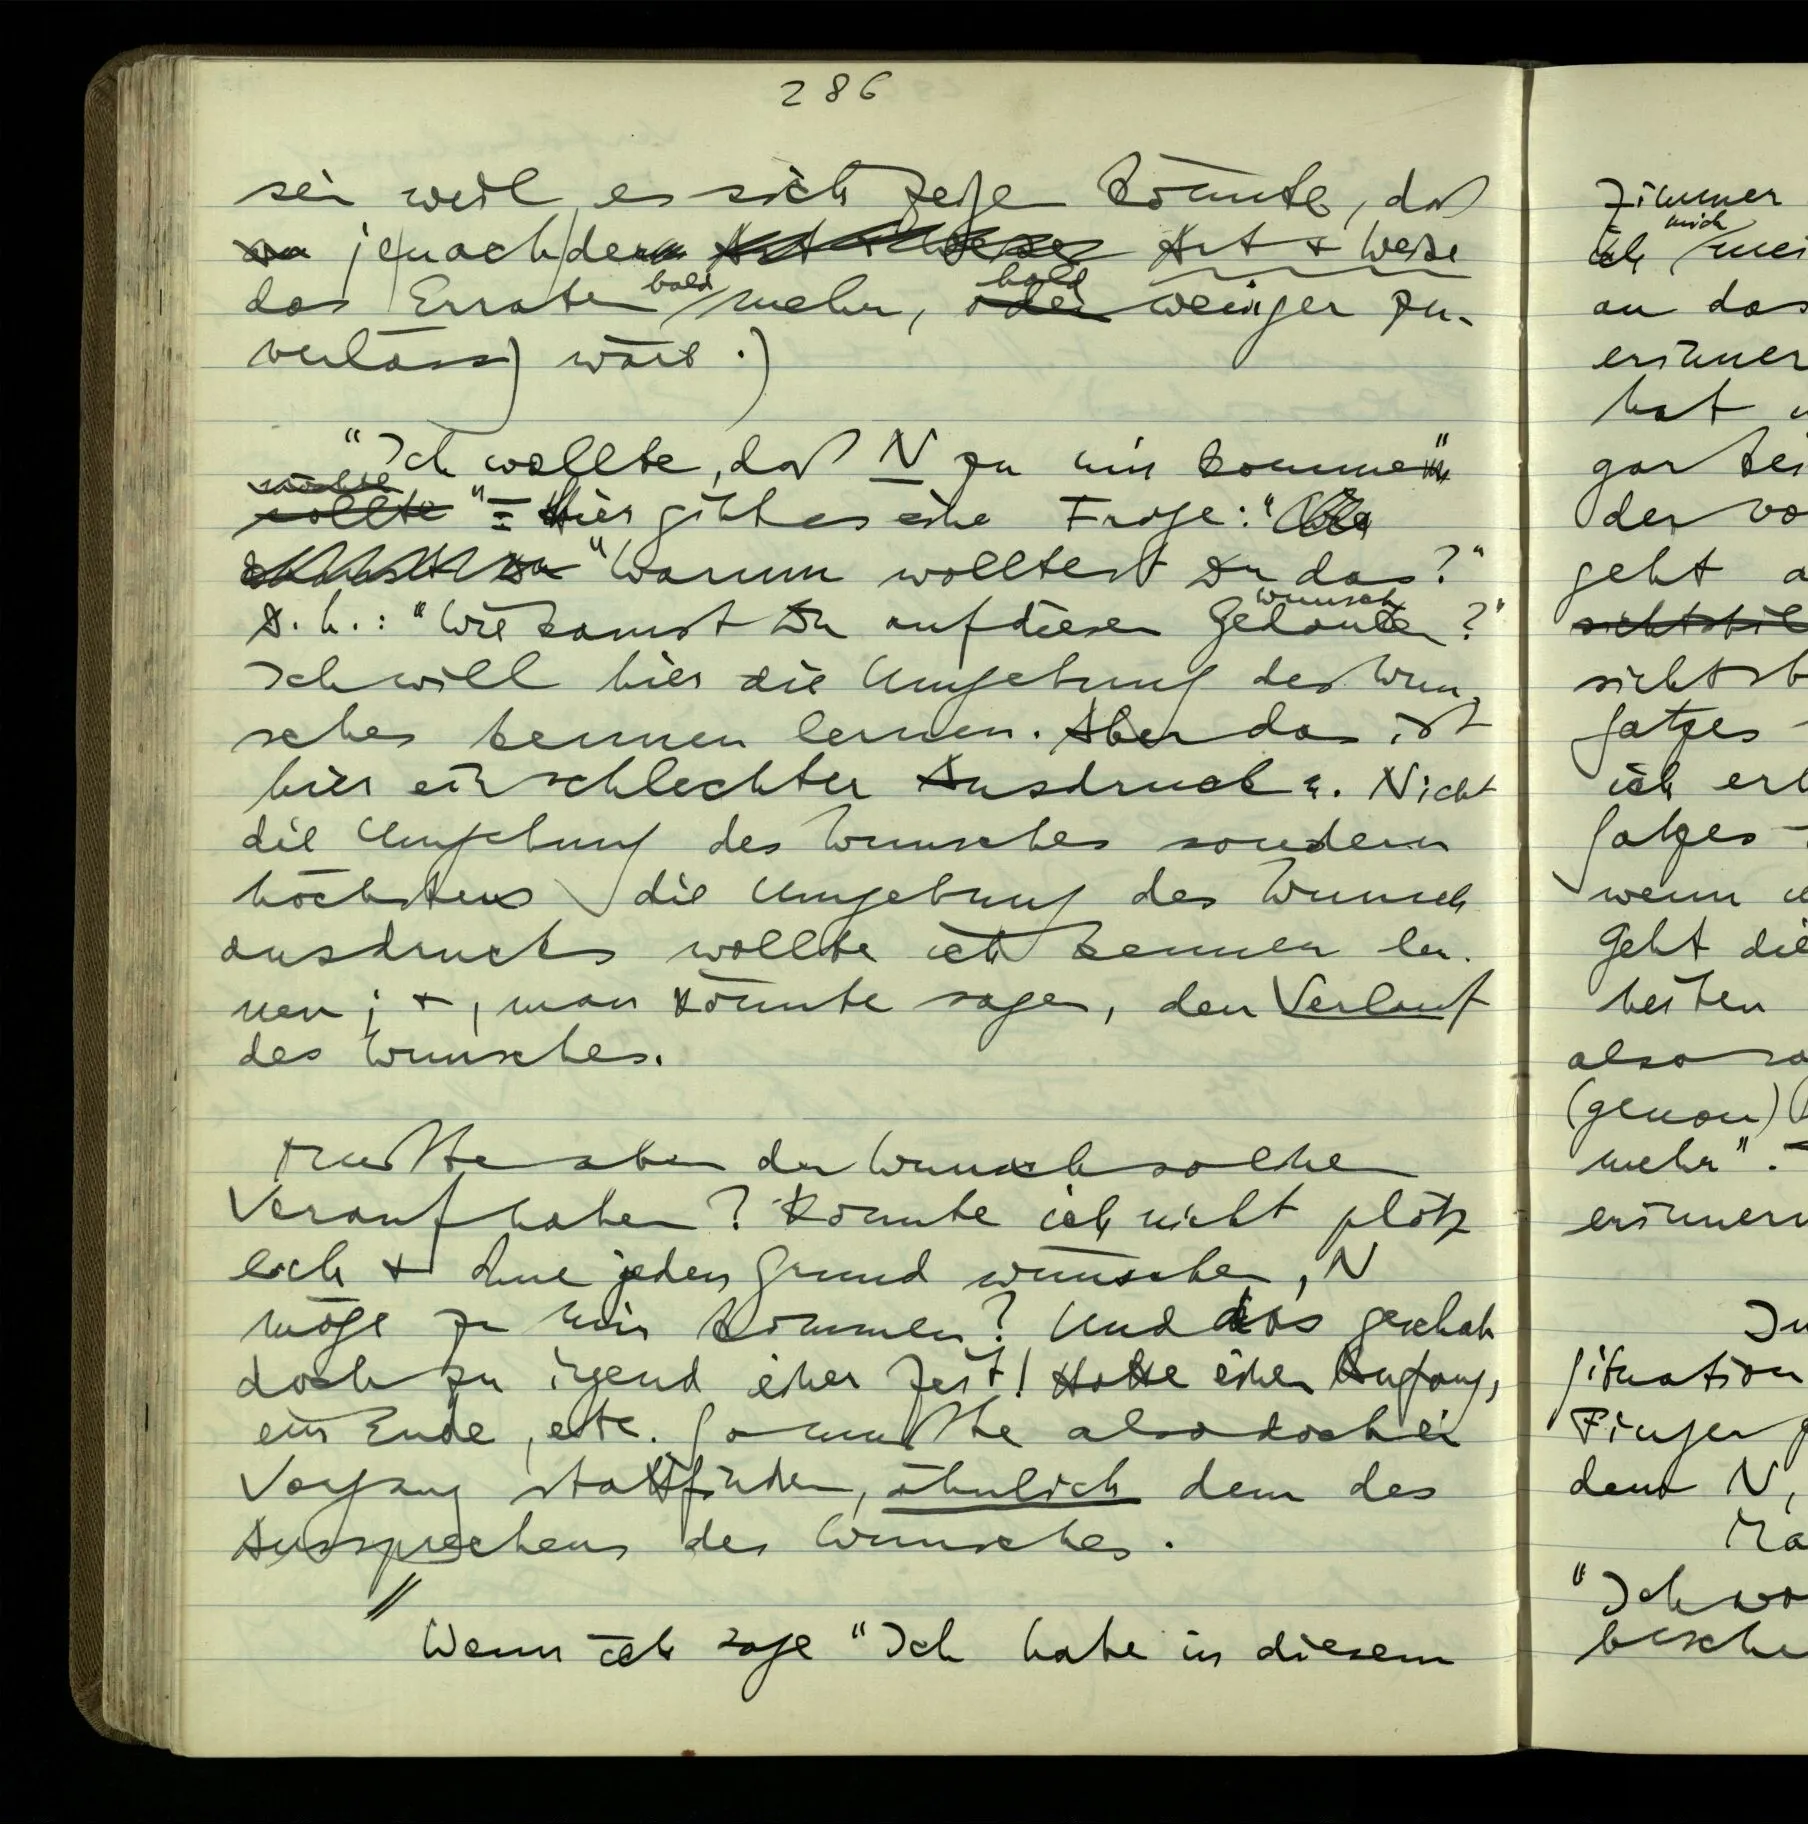 286
sei weil es sich zeigen könnte, daß
je nach der Art & Weise
das Erraten bald mehr, bald weniger zu-
verlässig wäre.)
"Ich wollte, daß N zu mir komme"
möchte
sollte" = Hier gibt es eine Frage: "
"Warum wolltest Du das?"
D.h.: "Wie kamst Du auf diesen Gedanken?"
wunsch
Ich will hier die Umgebung des Wun-
sches kennen lernen. Aber das ist
hier ein schlechter Ausdruck. Nicht
die Umgebung des Wunsches sondern
höchstens die Umgebung des Wunsch
ausdrucks wollte ich kennen ler-
nen; +, man könnte sagen, den Verlauf
des Wunsches.
Mußte aber der Wunsch solchen
Verauf haben? Konnte ich nicht plötz
lich + ohne jeden Grund wünschen, N
möge zu mir kommen? Und das geschah
doch zu irgend einer Zeit! Hatte einen Anfang,
ein Ende, etc. So mußte also doch ein
Vorgang stattfinden, ähnlich dem des
Aussprechens des Wunsches.
//
Wenn ich sage "Ich habe in diesem
Zimmer
mich
ich
an das
erinner
hat
gar kei
der vo
geht a
sicht
Satzes
ich erk
Satzes
wenn
geht die
heiten
also
(genau)
mehr".
erinnern
In
Situation
Finger
dem N,
Ma
"Ich wo
besche